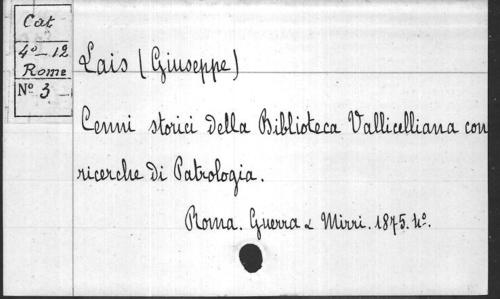 Cat
4º-12
Rome
Nº 3
Lais (Giuseppe)
Cenni storici della Biblioteca Vallicelliana con
ricerche di Patrologia.
Roma. Guerra & Mirri. 1875. 4º.